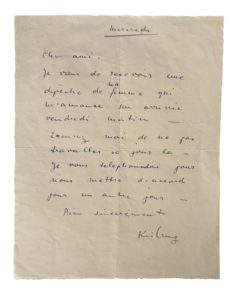 mercredi
Cher ami,
Je viens de recevoir une
dépêche de ma femme qui
m'annonce son arrivée
vendredi matin —
Excusez moi de ne pas
travailler ce jour là —
Je vous téléphonerai pour
nous mettre d'accord
pour un autre jour —
Bien sincèrement